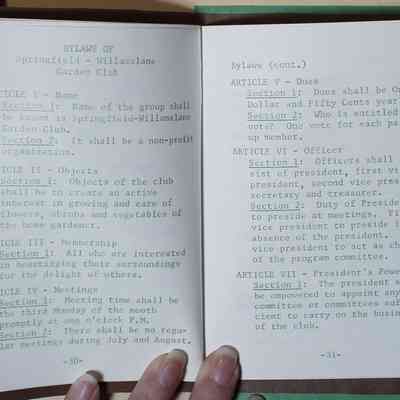 BYLAWS OF
Springfield - Willamalane
Garden Club
ARTICLE I - Name
Section 1: Name of the group shall
be known is Springfield-Willamalane
Garden Club.
Section 2: It shall be a non-profit
organization.
TICLE II - Objects
Section 1: Objects of the club
shall be to create an active
interest in growing and care of
flowers, shrubs and vegetables of
the home gardener.
TICLE III - Membership
Section 1: All who are interested
in beautifying their surroundings
for the delight of others.
ICLE IV - Meetings
Section 1: Meeting time shall be
the third Monday of the month
promptly at one o'clock P.M.
Section 2: There shall be no regu-
lar meetings during July and August.
-30-
Bylaws (cont.)
ARTICLE V - Dues
Section 1: Dues shall be On
Dollar and Fifty Cents year
Section 2: Who is entitled
vote? One vote for each pa
up member.
ARTICLE VI - Officer
Section 1: Officers shall
sist of president, first vi
president, second vice pres
secretary and treasurer.
Section 2: Duty of Preside
to preside at meetings. Fi
vice president to preside i
absence of the president.
vice president to act as ch
of the program committee.
ARTICLE VII - President's Powe
Section 1: The president s
be empowered to appoint any
committee or committees suf
cient to carry on the busin
of the club.
-31-